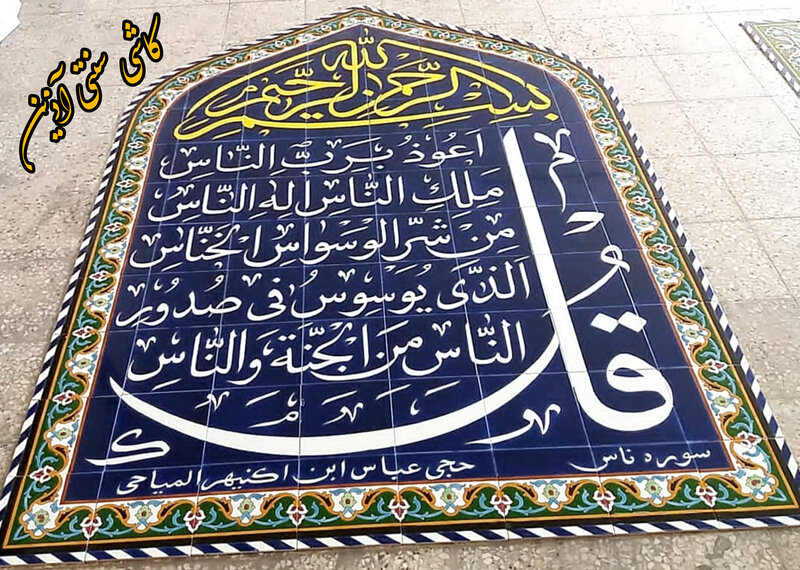 کاشی سنتی آذین
بسم الله الرحمن الرحیم
قل
اَعُوذُ بِرَبِّ النّاسِ
مَلِكِ النّاسِ اِلهِ النّاسِ
مِن شَرِّ الوَسواسِ الخَنّاسِ
اَلَّذی یُوَسوِسُ فی صُدُورِ
النّاسِ مِنَ الجِنَّةِ وَالنّاسِ
سوره ناس
حجی عباس ابن اکنیهر المیاحی